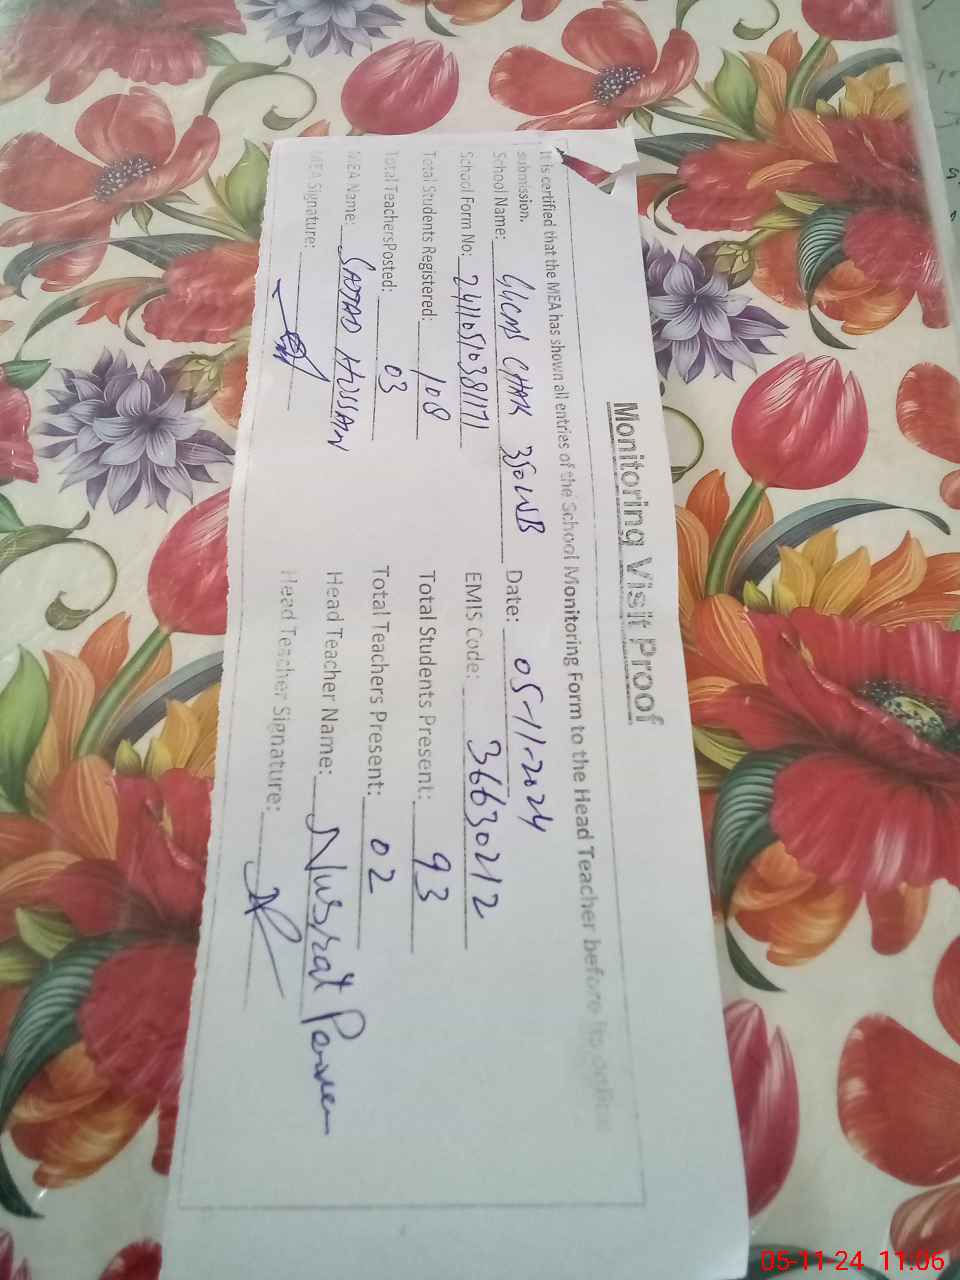 Monitoring Visit Proof
It is certified that the MEA has shown all entries of the School Monitoring Form to the Head Teacher before its online
submission.
School Name: GGCMS CHAK 350WB Date: 05-11-2024
School Form No: 24110510381171 EMIS Code: 36630212
Total Students Registered: 108 Total Students Present: 93
Total TeachersPosted: 03 Total Teachers Present: 02
MEA Name: SAJJAD HUSSAN Head Teacher Name: Nusrat Parveen
MEA Signature: Head Teacher Signature:
05-11-24 11:06